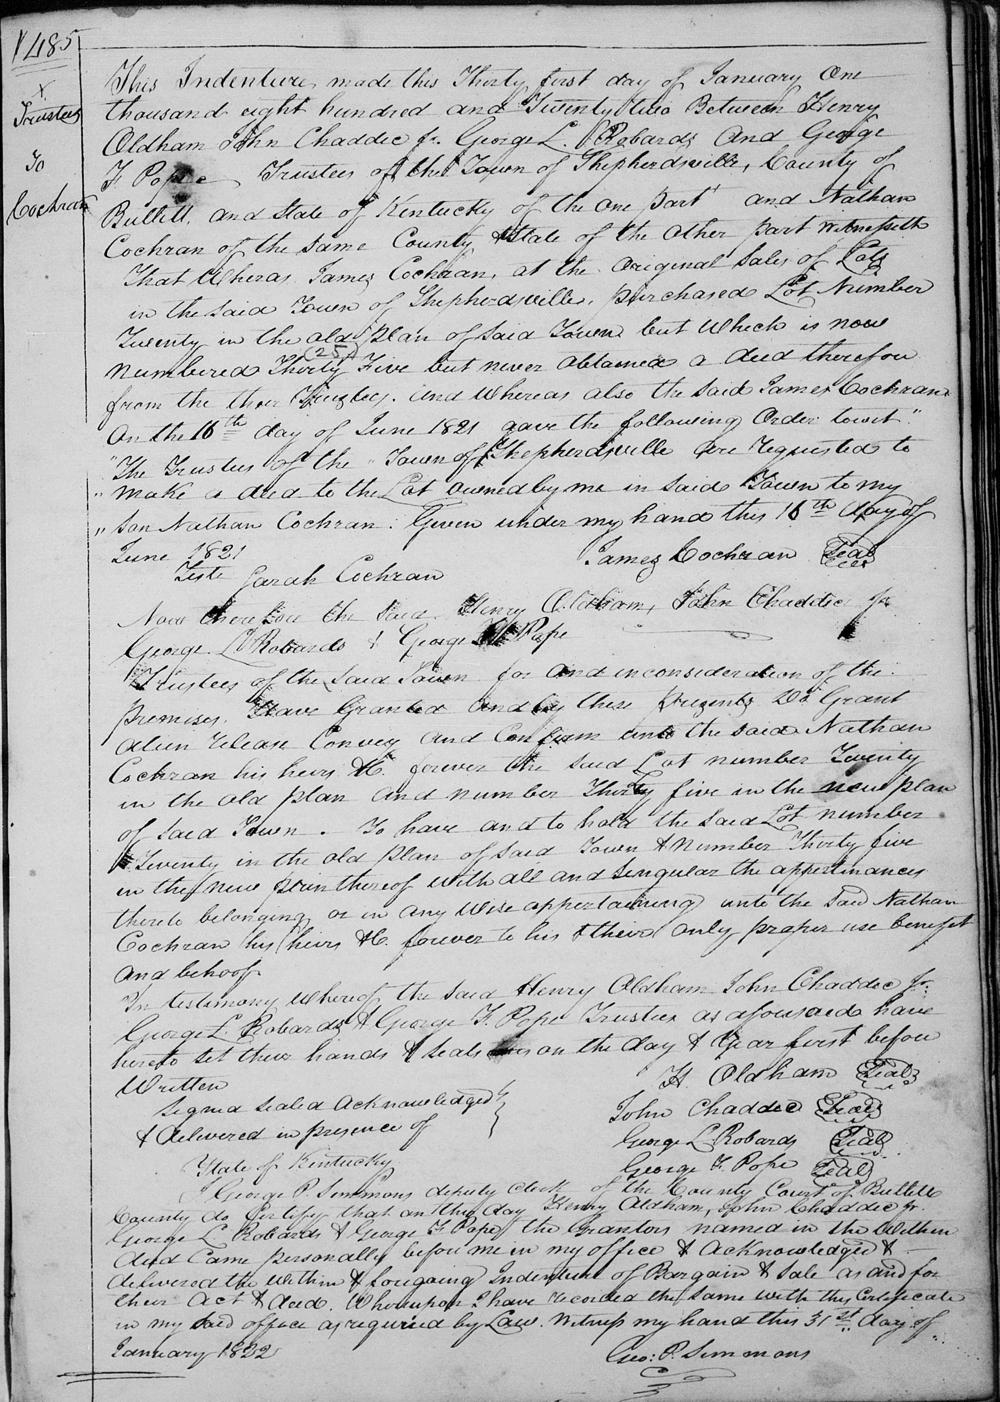 485
Trustees
To
Cochran
This Indenture made this Thirty first day of January One
thousand eight hundred and Twenty two Between Henry
Oldham John Chaddic Jr. George L. Robards and George
F Pope Trustees of the Town of Shepherdsville, County of
Bullitt, and State of Kentucky of the one part and Nathan
Cochran of the same County & State of the other part Witnesseth
That Wheras James Cochran, at the original Sales of Lots
in the said Town of Shepherdsville, purchased Lot Number
Twenty in the old plan of said Town but which is now
numbered Thirty (25) Five but never obtained a deed therefou
from the then Trustees. and Whereas also the said James Cochran
On the 16th day of June 1821 gave the following Order towit"
"The Trustees of the Town of Shepherdsville are requested to
" make a deed to the Lot owned by me in said Town to my
" son Nathan Cochran. Given under my hand this 16th day of
June 1821 James Cochran Seal
Teste Sarah Cochran
Now therefore the said Henry Oldham, John Chaddic Jr
George L Robards & George F Pope
Trustees of the said Town for and inconsideration of the
premises. Have Granted and by these presents Do Grant
alien release Convey and Confirm unto the said Nathan
Cochran his heirs &c. forever the said Lot number Twenty
in the old plan and number Thirty five in the new plan
of said Town. To have and to hold the said Lot number
Twenty in the old plan of said Town & number Thirty five
in the new plan thereof with all and singular the appertinances
thereto belonging or in any wise appertaining unto the said Nathan
Cochran his heirs &c. forever to his & their only proper use benefit
and behoof
In testimony Whereof the said Henry Oldham John Chaddic Jr.
George L. Robards & George F. Pope Trustees as afousaid have
hereto set their hands & seals on the day & year first before
Written H. Oldham Seal
Signed sealed acknowledged John Chaddic Seal
& delivered in presence of George L Robards Seal
State of Kentucky George F. Pope Seal
I George P. Simmons deputy clerk of the County Court of Bullitt
County do Certify that on this day Henry Oldham, John Chaddic Jr.
George L Robards & George F Pope the Grantors named in the within
deed came personally before me in my office & acknowledged &
delivered the within & foregoing Indenture of Bargain & Sale as and for
their Act & deed. Whereupon I have recorded the same with this Certificate
in my said office as required by Law. Witness my hand this 31st day of
January 1822 Geo: P. Simmons